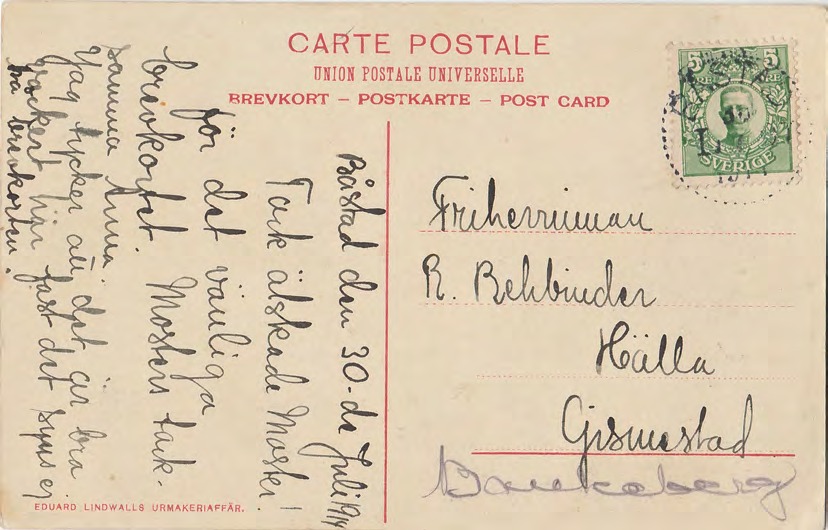 CARTE POSTALE
UNION POSTALE UNIVERSELLE
BREVKORT – POSTKARTE – POST CARD
Båstad den 30-de Juli 1914
Tack älskade Moster!
för det vänliga
brevkortet. Mosters tack-
samma Anna.
Jag tycker att det är bra
vackert här fast det synes ej
på brevkorten.
EDUARD LINDWALLS URMAKERIAFFÄR.
5 5
ÖRE
SVERIGE
BÅSTAD
Friherrinnan
R. Rehbinder
Hälla
Grismestad